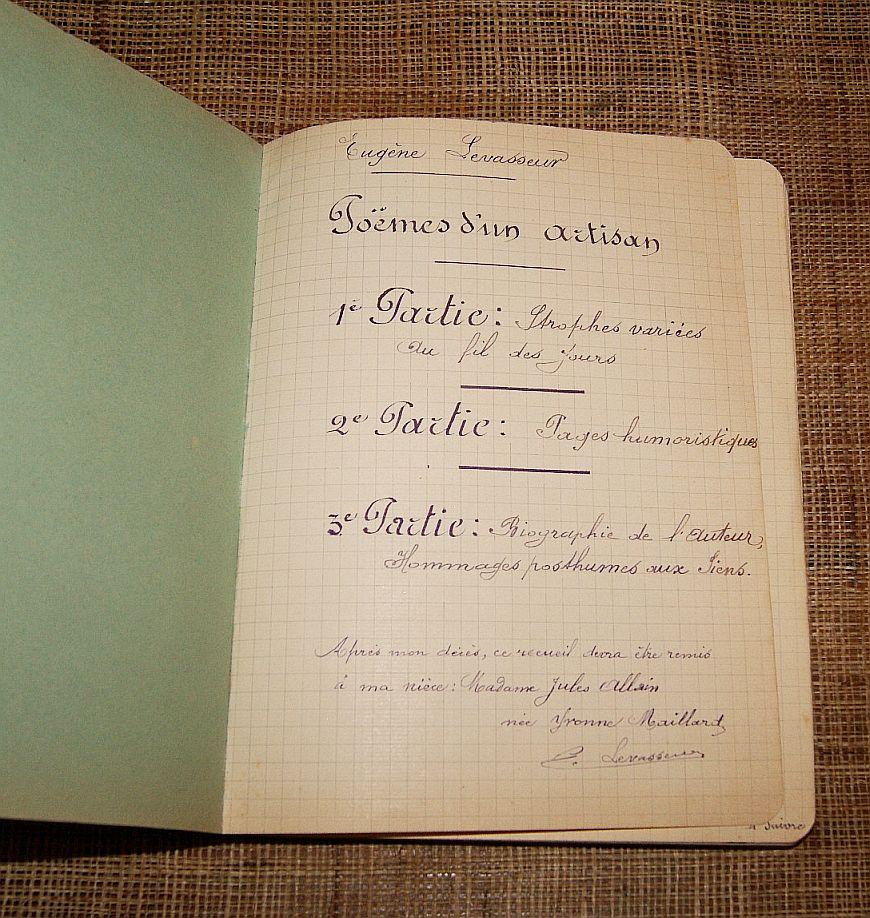 Eugène Levasseur
Poëmes d'un artisan
1e Partie : Strophes variées
Au fil des jours
2e Partie : Pages humoristiques
3e Partie : Biographie de l'Auteur,
Hommages posthumes aux Siens.
Après mon décès, ce recueil devra être remis
à ma nièce : Madame Jules Allain
née Yvonne Maillard
E. Levasseur
à suivre